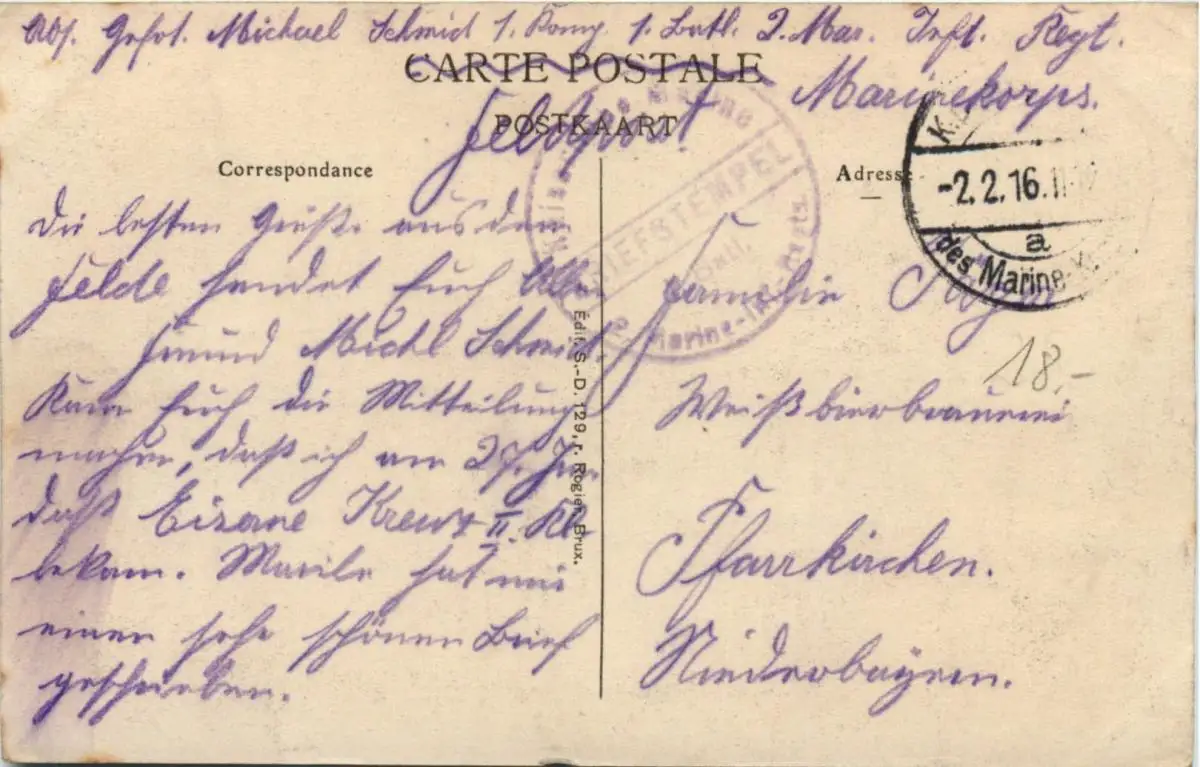 Abs. Gefrt. Michael Schmid 1. Komp. 1. Batl. 2. Mar. Inft. Regt.
Marinekorps.
CARTE POSTALE
Feldpost.
POSTKAART
Correspondance
Adresse
BRIEFSTEMPEL
Marine-Inf.-Regts.
-2.2.16.11-12
a
des Marine-K
Die besten Grüße aus dem
Felde sendet Euch Allen
Freund Michl Schmid.
Kann Euch die Mitteilung
machen, daß ich am 27. Jan.
daß Eisane Kreuz II. Kl.
bekam. Marile hat mir
einen sehr schönen Brief
geschrieben.
Édit. S.-D. 129, r. Rogier, Brux.
Familie
18.-
Weißbierbrauerei
Pfarrkirchen.
Niederbayern.